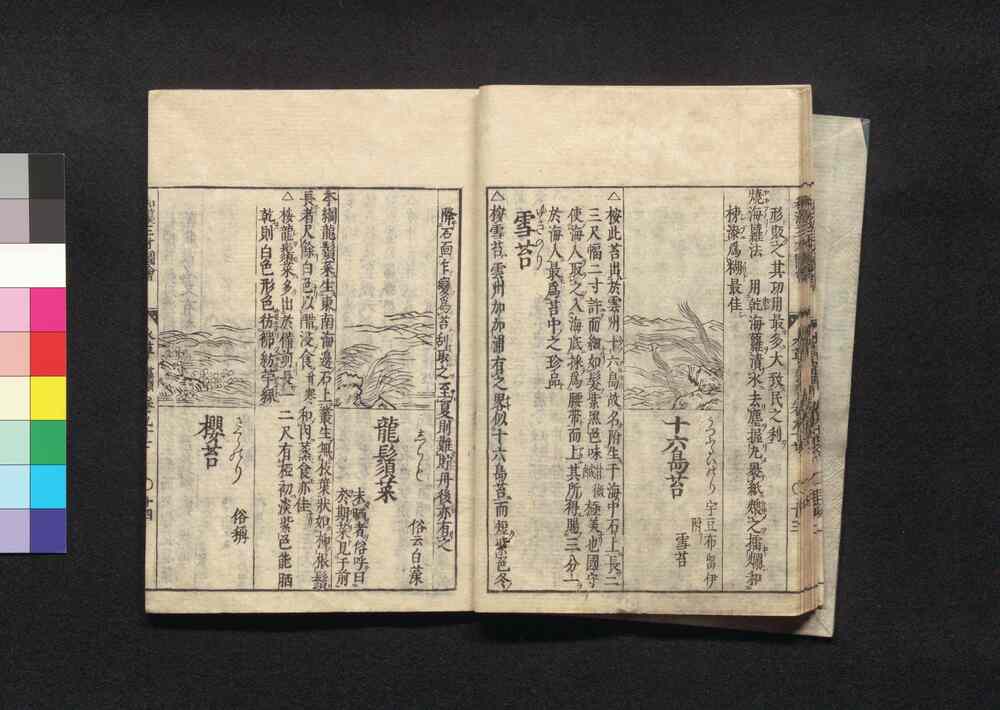 形取之其功用最多大致民之利
燒海蘿法 用乾海蘿漬水去塵握丸畏紙煨之擂爛和
揀漆爲糊最佳
十六島苔
うつふるいのり
宇豆布留伊
附
雪苔
△按此苔出於雲州十六島故名附生于海中石上長二
三尺幅二寸許而細如髮紫黑色味甘微鹹極美也國守
使海人取之入海底採爲腰帶而上其所得賜三分一
於海人最爲苔中之珍品
雪苔
ゆきのり
△按雪苔雲州加加浦有之畧似十六島苔而短紫色冬
際石面乍變爲苔刮取之至夏則難貯丹後亦有之
龍鬚菜
しらも
俗云白藻
未晒者俗呼曰
於期菜見于前
本綱龍鬚菜生東南海邊石上叢生無枝葉狀如柳根鬚
長者尺餘白色以醋浸食和肉蒸食亦佳
△按龍鬚菜多出於備前長一二尺有極初淡紫色能晒
乾則白色形色彷彿紡苧線
櫻苔
さくらのり
俗稱